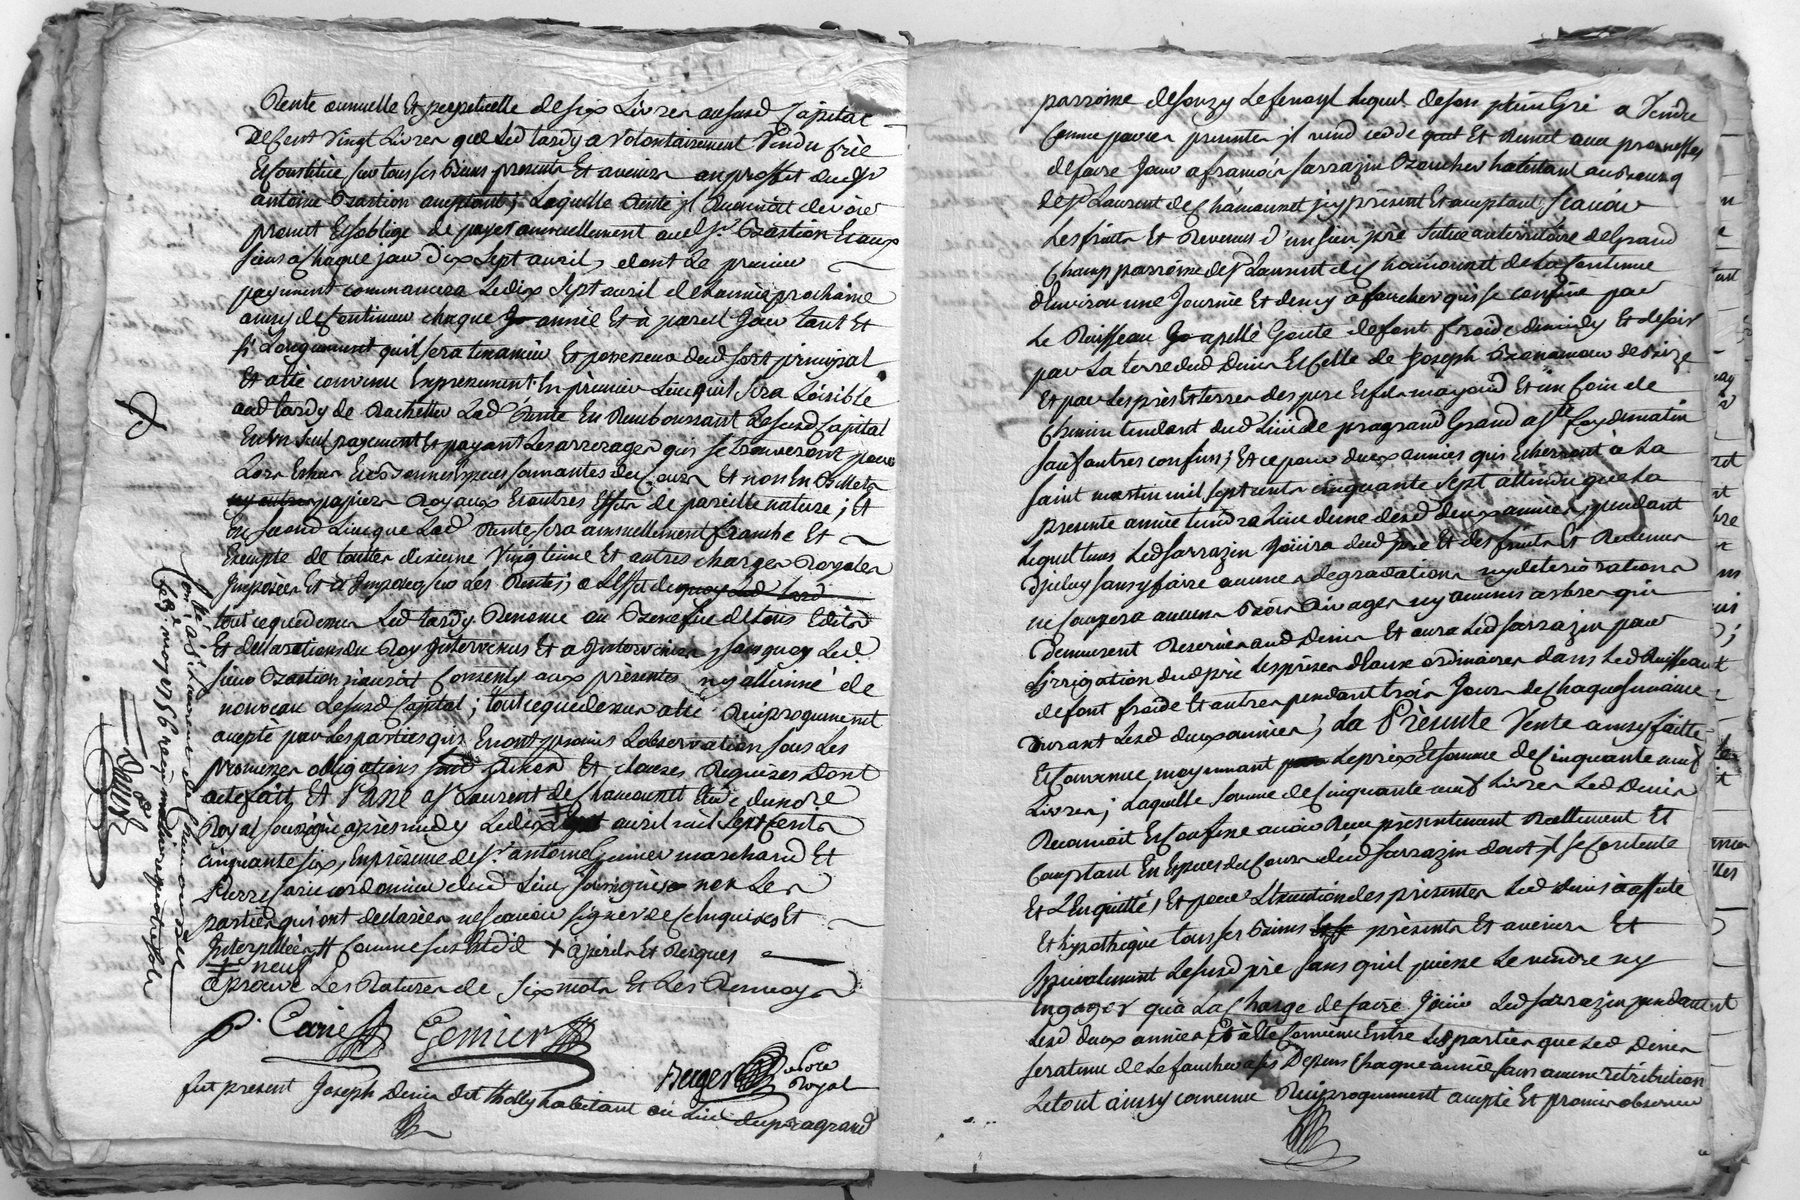 Rente annuelle Et perpetuelle de six Livres au susd Capital
De Cent Vingt Livres que Led tardy a Volontairement Vendu crée
Et Constitué sur tous ses biens presents Et avenir au proffit dud Sr
antoine Bastion acceptant; Laquelle Rente jl
promet Et soblige de payer annuellement aud Sr. Bastion Et aux
siens a Chaque jour dix Sept avril, dont Le premier
payement commancera Le dix Sept avril de Lannée prochaine
ainsy de Continuer chaque année Et à pareil Jour tant Et
si Longuement quil sera tenancier Et possesseur dud sort principal
Et atté convenu Expressement En premier Lieu quil sera Loisible
aud tardy de Rachetter Lad Rente En Remboursant Le susd Capital
En un seul payement Et payant Les arrerages qui se trouveront pour
Lors Echus En bonnes Especes sonnantes du Cours Et non En Billets
papiers Royaux Et autres Effets de pareille nature; Et
En second Lieu que Lad Rente sera annuellement franche Et
Exempte de toutes dixieme Vingtieme Et autres charges Royales
Jmposées Et a Jmposer sur Les Rentes; a Leffet de quoy
tout ce que dessus Led tardy Renonce au Benefice de tous Edits
Et declarations du Roy Jntervenus Et a Jntervenir, sans quoy Led
sieur Bastion nauroit Consenty aux présentes ny alienné de
nouveau Le susd Capital; tout ce que dessus atté Reciproquement
accepté par Les parties qui En ont promis Lobservation sous Les
promesses obligations Et clauses Requises Dont
acte fait Et Passé a St Laurent de Chamousset Etude du nore
Royal soussigné après midy Le dix avril mil Sept Cents
cinquante six, En présence de Sr. antoine Genier marchand Et
Pierre Carie cordonnier dud Lieu soussignés non Les
parties qui ont declarées ne scavoir signer de ce Enquises Et
Jnterpellées Comme sus Est dit + a perils Et Risques
+ neuf
approuvé Les Ratures de Six mots Et Les Renvoys
P. Carie Genier
Berger nore
Royal
fut present Joseph Denis dit Tholly habitant au Lieu du pragrand
Conllé a St Laurent de Chamousset
Le 8 may 1756 reçu
parroisse de Souzy Le fenoyl Lequel de son plein Gré a Vendu
Comme par ces presentes jl vend cede Et Remet aux promesses
de faire Jouir a françois Sarrazin Boucher habitant au Bourg
de St Laurent de Chamousset jcy présent Et acceptant Scavoir
Les fruits Et Revenus d'un sien pré Situé au territoire de Grand
Champ parroisse de St Laurent de Chamousset de La Contenue
d'Environ une Journée Et demy a faucher qui se confine par
Le Ruisseau apellé Goute de font froide de midy Et de soir
par La terre dud Denis Et Celle de Joseph
Et par Les prés Et terres des pere Et fils mayoud Et un Coin de
Chemin tendant dud Lieu de pragrand Grand a Ste foy de matin
sauf autres confins; Et ce pour deux années qui Echerront à La
saint martin mil sept cents cinquante Sept attendu que La
presente année tiendra Lieu dune desd deux années, pendant
Lequel tems Led Sarrazin Jouira dud pré Et des fruits Et Revenus
Djceluy sans y faire aucunes degradations ny deteriorations
ne Coupera aucuns Bois Rivages ny aucuns arbres qui
Demeurent Reservés aud Denis Et aura Led Sarrazin pour
Lirrigation dud pré Les prises d'Eaux ordinaires dans Led Ruisseau
de font froide Et autres pendant trois Jours de Chaque semaine
Durant Lesd deux années; La Présente Vente ainsy faitte
Et Convenue moyennant Le prix Et somme de Cinquante neuf
Livres; Laquelle Somme de Cinquante neuf Livres Led Denis
Reconnoit Et Confesse avoir Reçu présentement Reellement Et
Comptant En Especes du Cours dud Sarrazin dont jl se Contente
Et L'En quitte; Et pour L'Execution des présentes Led Denis a affecté
Et hypothéqué tous ses biens présents Et avenirs Et
specialement Le susd pré sans quil puisse Le vendre ny
Engager qu'à La Charge de faire Jouir Led Sarrazin pendant
Lesd deux années, Et a Eté Convenu Entre Lesd parties que Led Denis
sera tenu de Le faucher a ses Depens Chaque année sans aucune retribution
Le tout ainsy convenu Reciproquement accepté Et promis observer